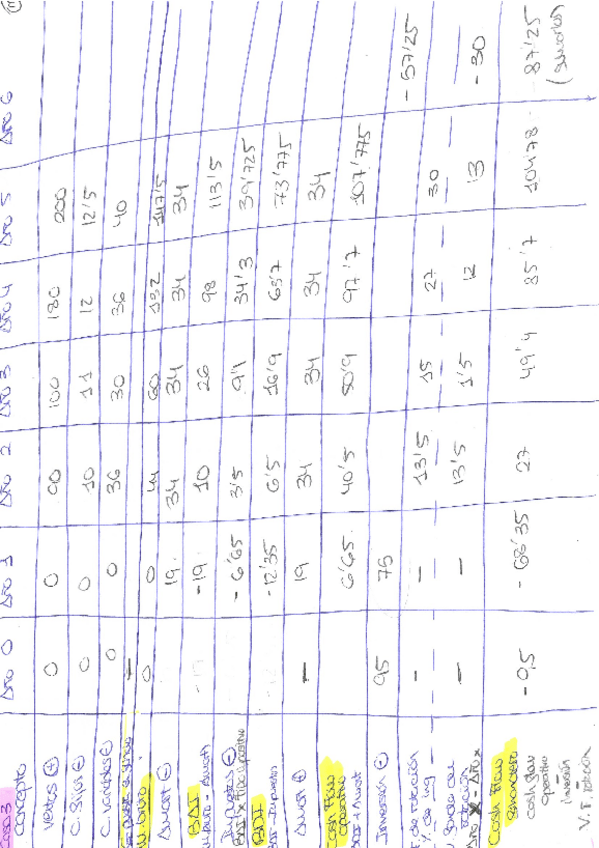 Caso 3
Concepto Año 0 Año 1 Año 2 Año 3 Año 4 Año 5 Año 6
Ventas (+) 0 0 90 100 180 200
C. fijos (-) 0 0 10 11 12 12'5
C. variables (-) 0 0 36 30 36 40
M. bruto 0 0 44 60 132 147'5
Amort (-) 19 34 34 34 34
BAI -19 10 26 98 113'5
M. bruto - Amort
Impuestos (-) -6'65 3'5 9'1 34'3 39'725
BAI x tipo impositivo
BDI -12'35 6'5 16'9 63'7 73'775
BAI - Impuestos
Amort (+) - 19 34 34 34 34
Cash Flow operativo 6'65 40'5 50'9 97'7 107'775
BDI + Amort
Inversión (-) 95 75
F. de rotación - - 13'5 15 27 30
% de ing - 57'25
- - 13'5 1'5 12 13 - 30
rotación
Año x
Cash Flow financiero -95 -68'35 27 49'4 85'7 104'78 87'25
cash flow operativo
-
Inversión
-
V. F. rotación